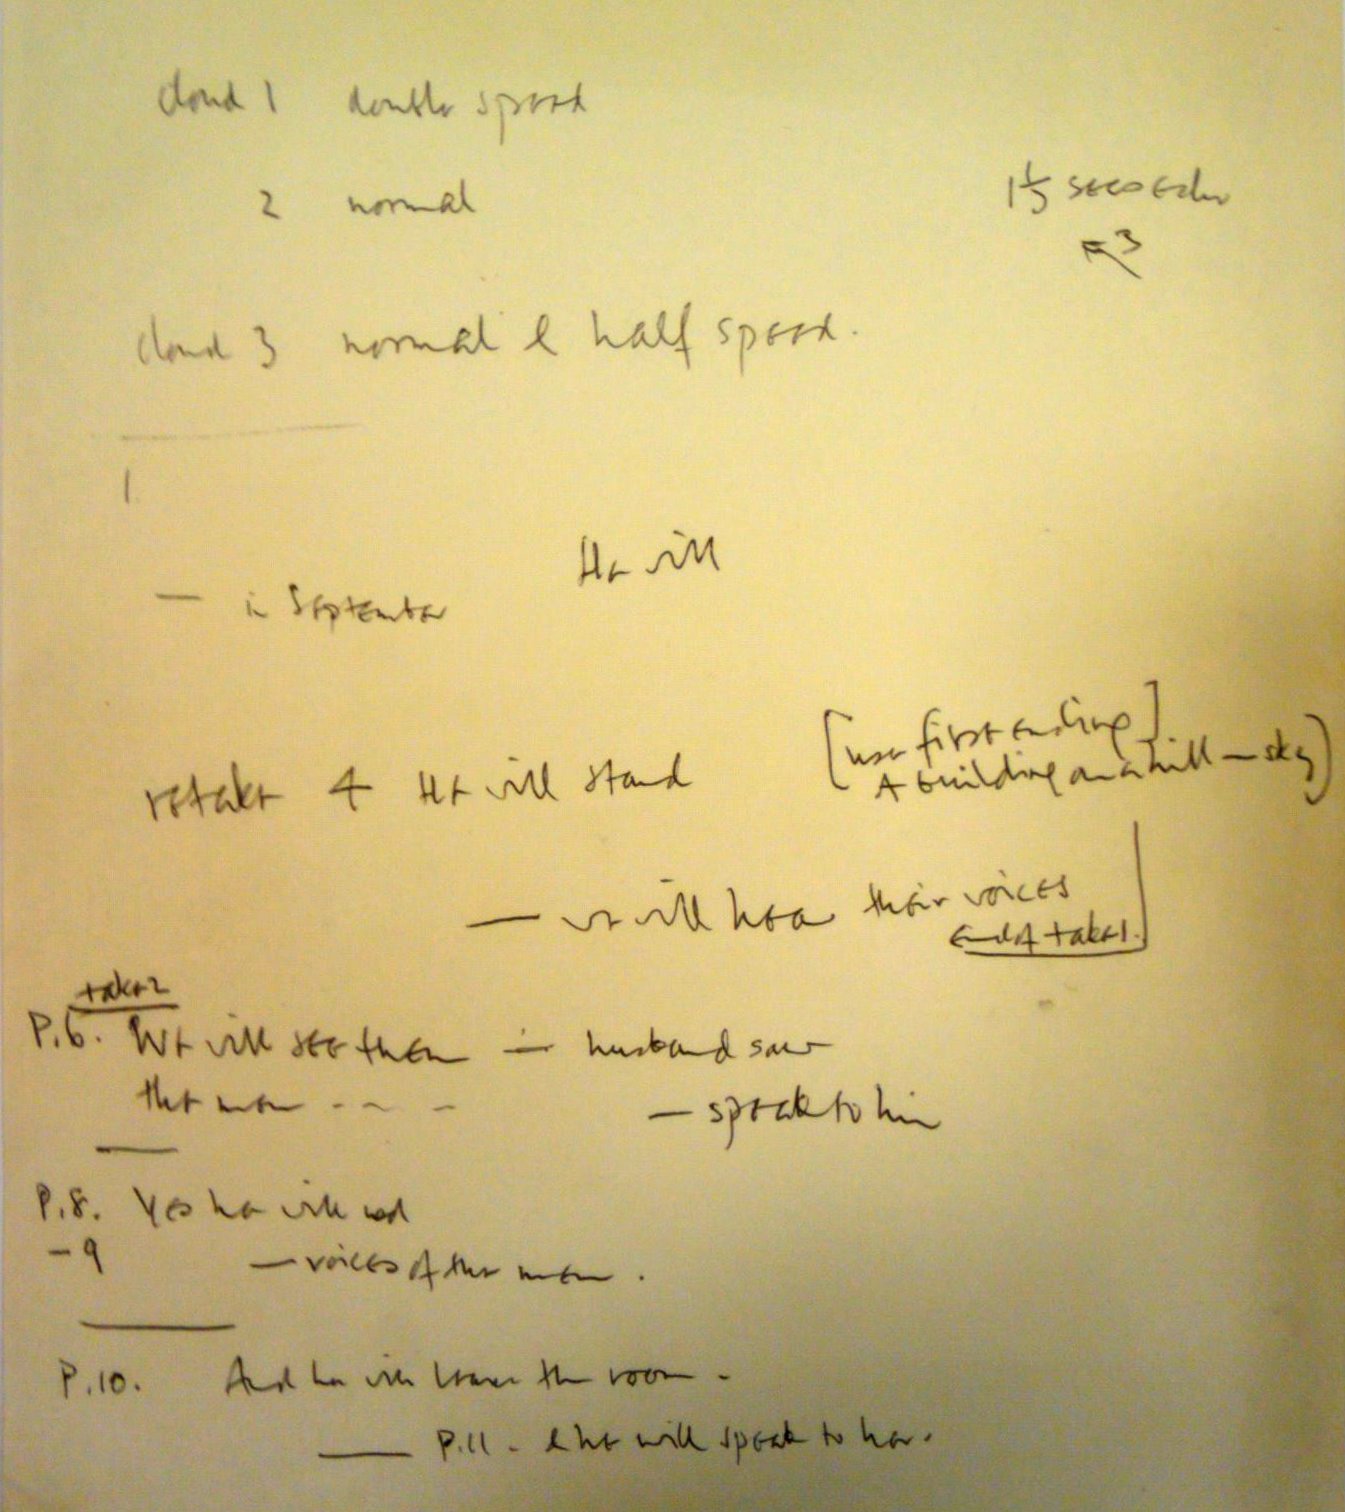 cloud 1 double speed
2 normal
1½ sec echo
3
cloud 3 normal & half speed.
1
He will
— in September
[use first ending]
retake 4 He will stand
A building on a hill — sky)
— we will hear their voices
end of take 1.
take 2
P.6. We will see them — husband saw
the men - - -
— speak to him
P.8. Yes he will
- 9
— voices of the men.
P.10. And he will leave the room -
— P.11 - & he will speak to her.